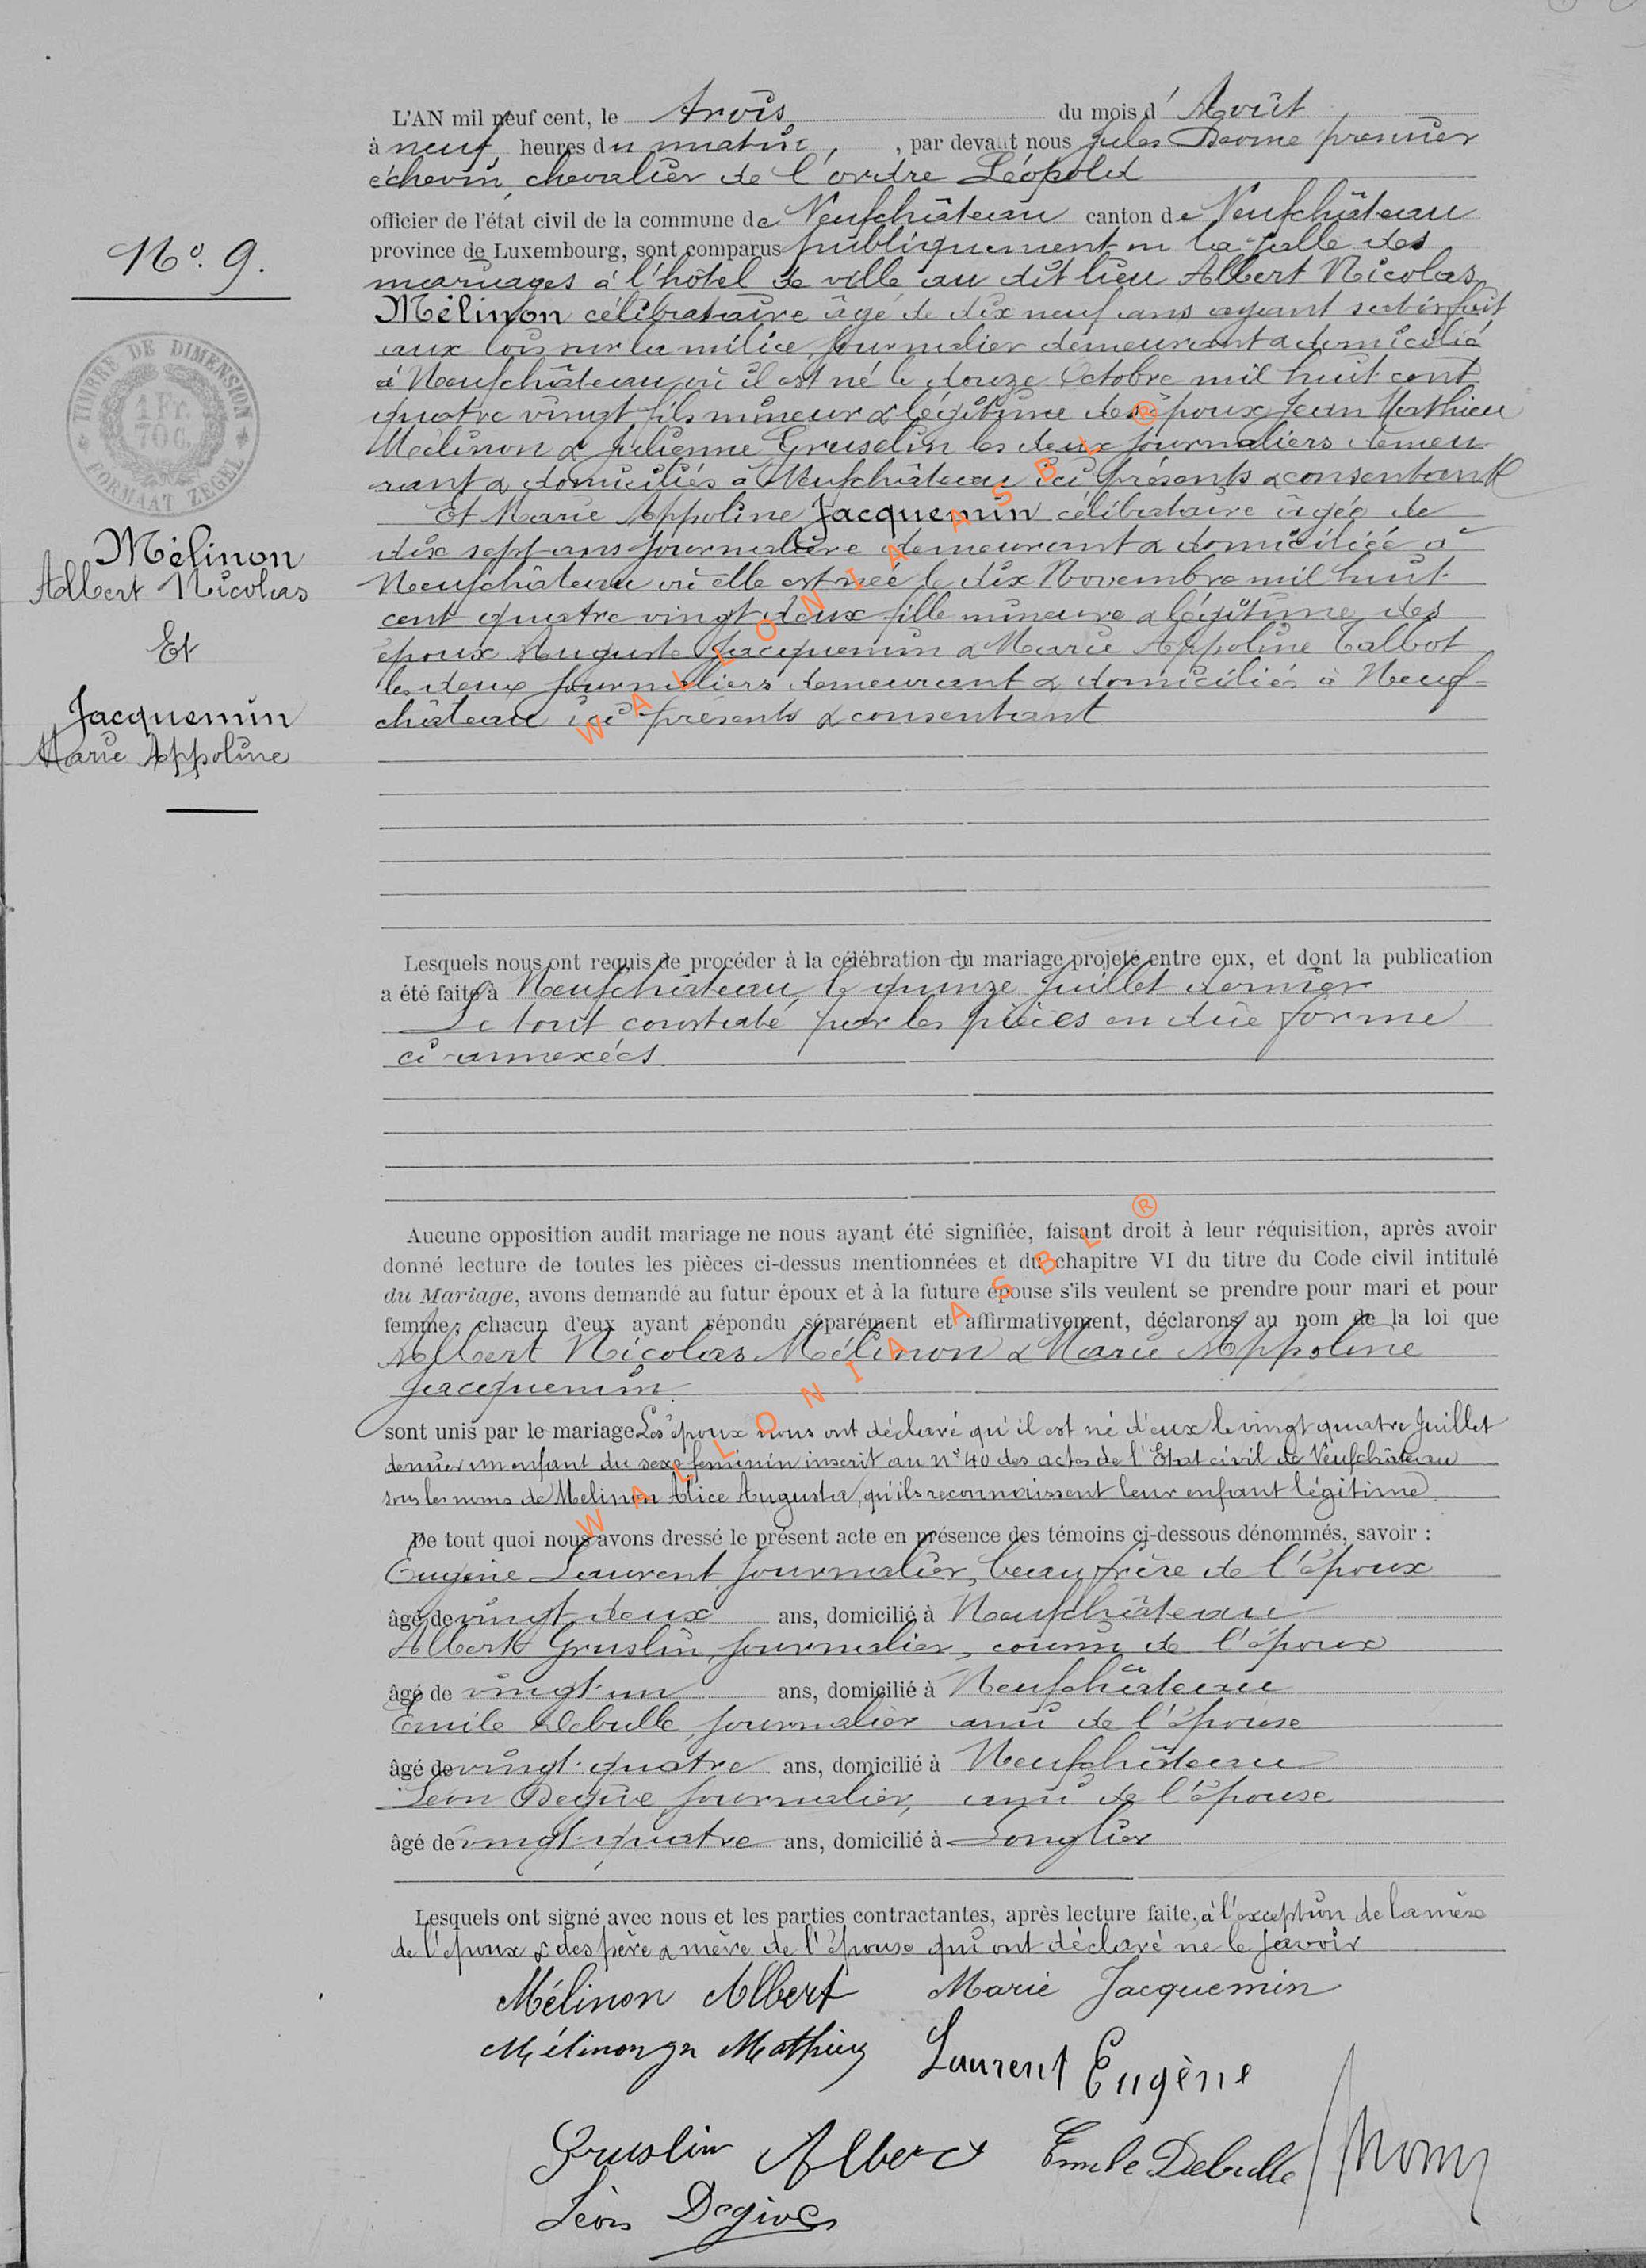 L'AN mil neuf cent, le trois du mois d'Août
à neuf heures du matin, par devant nous Jules premier
échevin, chevalier de l'ordre Léopold
officier de l'état civil de la commune de Neufchâteau canton de Neufchâteau
province de Luxembourg, sont comparus publiquement en la salle des
mariages à l'hôtel de ville au dit lieu Albert Nicolas
Mélinon célibataire âgé de dix neuf ans ayant satisfait
aux lois sur la milice, journalier demeurant & domicilié
à Neufchâteau où il est né le douze Octobre mil huit cent
quatre vingt fils mineur & légitime des époux Jean Mathieu
Mélinon & Julienne Gruselin les deux journaliers demeu
rant & domiciliés à Neufchâteau ici présents & consentant
Et Marie Appoline Jacquemin célibataire âgée de
dix sept ans journalière demeurant & domiciliée à
Neufchâteau où elle est née le dix Novembre mil huit
cent quatre vingt deux fille mineure & légitime des
époux Auguste Jacquemin & Marie Appoline Talbot
les deux journaliers demeurant & domiciliés à Neuf-
château ici présents & consentant
No. 9.
TIMBRE DE DIMENSION
1 Fr.
70 C.
FORMAAT ZEGEL
Mélinon
Albert Nicolas
Et
Jacquemin
Marie Appoline
Lesquels nous ont requis de procéder à la célébration du mariage projeté entre eux, et dont la publication
a été faite à Neufchâteau, le quinze Juillet dernier
Le tout constaté par les pièces en due forme
ci annexées.
Aucune opposition audit mariage ne nous ayant été signifiée, faisant droit à leur réquisition, après avoir
donné lecture de toutes les pièces ci-dessus mentionnées et du chapitre VI du titre du Code civil intitulé
du Mariage, avons demandé au futur époux et à la future épouse s'ils veulent se prendre pour mari et pour
femme; chacun d'eux ayant répondu séparément et affirmativement, déclarons au nom de la loi que
Albert Nicolas Mélinon & Marie Appoline
Jacquemin
sont unis par le mariage Les époux nous ont déclaré qu'il est né d'eux le vingt quatre Juillet
dernier un enfant du sexe feminin inscrit au n° 40 des actes de l'Etat civil de Neufchâteau
sous les noms de Melinon Alice Augusta, qu'ils reconnaissent leur enfant légitime
De tout quoi nous avons dressé le présent acte en présence des témoins ci-dessous dénommés, savoir :
Eugène Laurent journalier, beau frère de l'époux
âgé de vingt deux ans, domicilié à Neufchâteau
Albert Gruslin, journalier, cousin de l'époux
âgé de vingt un ans, domicilié à Neufchâteau
Emile Debulle, journalier ami de l'épouse
âgé de vingt quatre ans, domicilié à Neufchâteau
Léon Degive journalier, ami de l'épouse
âgé de vingt quatre ans, domicilié à Longlier
Lesquels ont signé avec nous et les parties contractantes, après lecture faite, à l'exception de la mère
de l'époux & des père & mère de l'épouse qui ont déclaré ne le savoir
Mélinon Albert Marie Jacquemin
Mélinon Jn Mathieu Laurent Eugène
Gruslin Albert Emile Debulle
Léon Degive
WALLONIA ASBL ®
WALLONIA ASBL ®